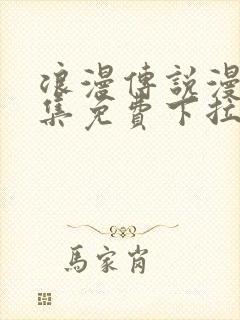 浪漫傳說漫
集免費下拉
馬家肖